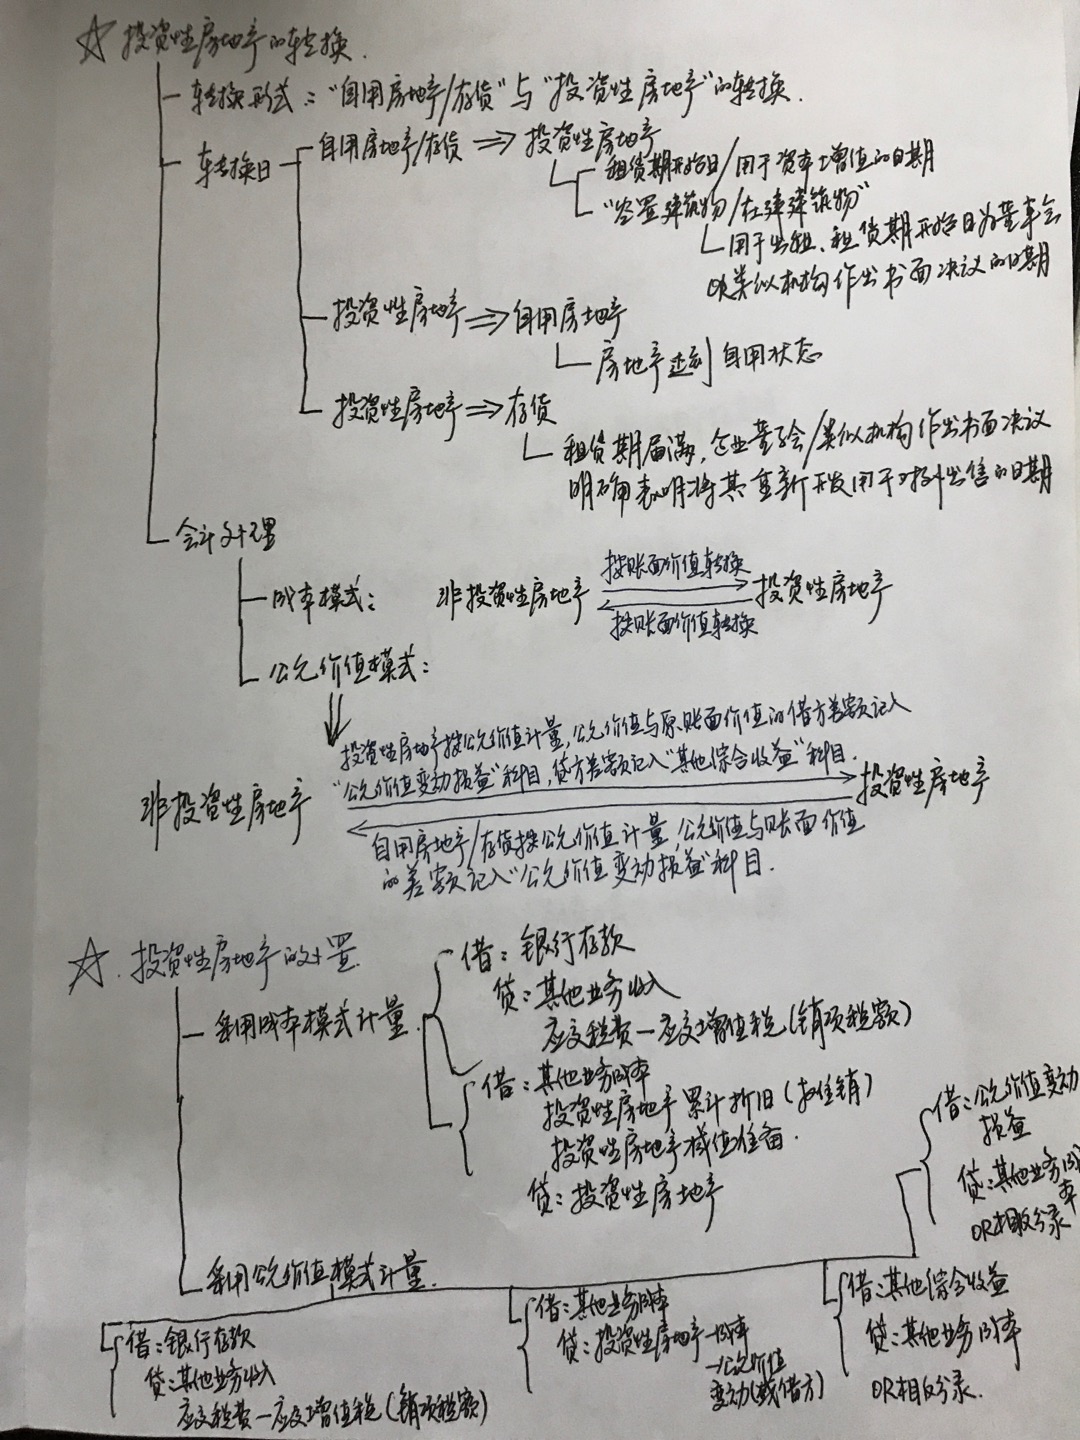 ☆ 投资性房地产的转换.
转换形式："自用房地产/存货"与"投资性房地产"的转换.
转换日
自用房地产/存货 ⇒ 投资性房地产
租赁期开始日/用于资本增值的日期
"空置建筑物/在建建筑物"
用于出租、租赁期开始日为董事会
或类似机构作出书面决议的日期
投资性房地产 ⇒ 自用房地产
房地产达到自用状态
投资性房地产 ⇒ 存货
租赁期届满，企业董事会/类似机构作出书面决议
明确表明将其重新开发用于对外出售的日期
会计处理
成本模式：
按账面价值转换
非投资性房地产
投资性房地产
按账面价值转换
公允价值模式：
投资性房地产按公允价值计量，公允价值与原账面价值的借方差额记入
"公允价值变动损益"科目，贷方差额记入"其他综合收益"科目.
非投资性房地产
投资性房地产
自用房地产/存货按公允价值计量，公允价值与账面价值
的差额记入"公允价值变动损益"科目.
☆. 投资性房地产的处置.
采用成本模式计量.
借：银行存款
贷：其他业务收入
应交税费—应交增值税(销项税额)
借：其他业务成本
投资性房地产累计折旧(或摊销)
投资性房地产减值准备.
贷：投资性房地产
采用公允价值模式计量.
借：银行存款
贷：其他业务收入
应交税费—应交增值税(销项税额)
借：其他业务成本
贷：投资性房地产—成本
—公允价值
变动(或借方)
借：其他综合收益
贷：其他业务成本
OR相反分录.
借：公允价值变动
损益
贷：其他业务成
本
OR相反分录